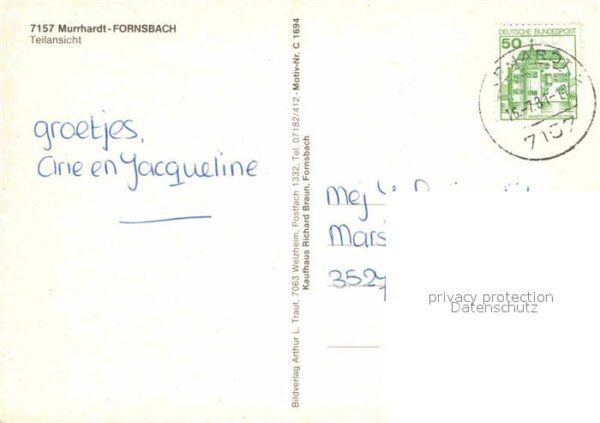 7157 Murrhardt-FORNSBACH
Teilansicht
groetjes,
Cirie en Jacqueline
Bildverlag Arthur L. Traut, 7063 Welzheim, Postfach 1332, Tel. 07182/412 - Motiv-Nr. C 1694
Kaufhaus Richard Braun, Fornsbach
DEUTSCHE BUNDESPOST
50
15.-7.81
7157
Mej
Mars
3527
privacy protection
Datenschutz